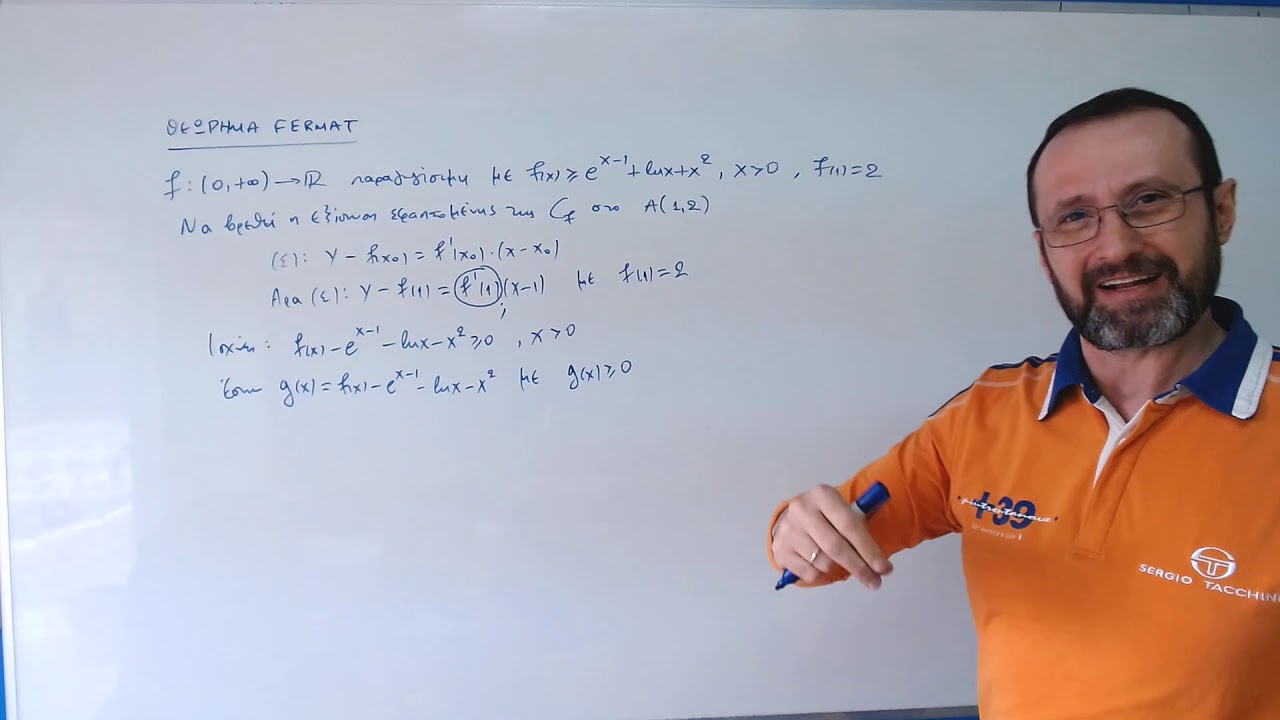 ΘΕΩΡΗΜΑ FERMAT
f: (0,+∞) → ℝ παραγ/σιμη με f(x) ≥ e^{x-1} + lnx + x², x>0, f(1)=2
Να βρεθεί η εξίσωση εφαπτομένης της C_f στο A(1,2)
(ε): y - f(x₀) = f'(x₀)·(x-x₀)
Άρα (ε): y - f(1) = f'(1)(x-1) με f(1)=2
;
Ισχύει: f(x) - e^{x-1} - lnx - x² ≥ 0, x>0
Έστω g(x) = f(x) - e^{x-1} - lnx - x² με g(x) ≥ 0
+39
SERGIO TACCHINI